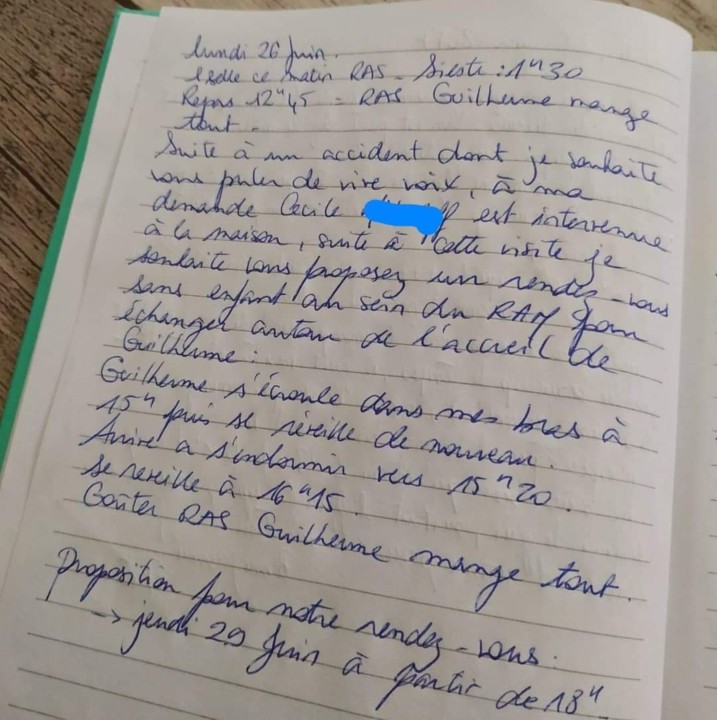 lundi 26 Juin.
Selle ce matin RAS - Sieste : 1h30
Repas 12h45 = RAS Guilherme mange
tout -
Suite à un accident dont je souhaite
vous parler de vive voix, à ma
demande Cecile est intervenue
à la maison, suite à cette visite je
souhaite vous proposez un rendez-vous
sans enfant au sein du RAM pour
échanger autour de l'accueil de
Guilherme :
Guilherme s'écroule dans mes bras à
15h puis se réveille de nouveau.
Arrive a s'endormir vers 15h20.
Se reveille à 16h15.
Goûter RAS Guilherme mange tout.
Proposition pour notre rendez-vous :
→ jeudi 29 Juin à partir de 18h